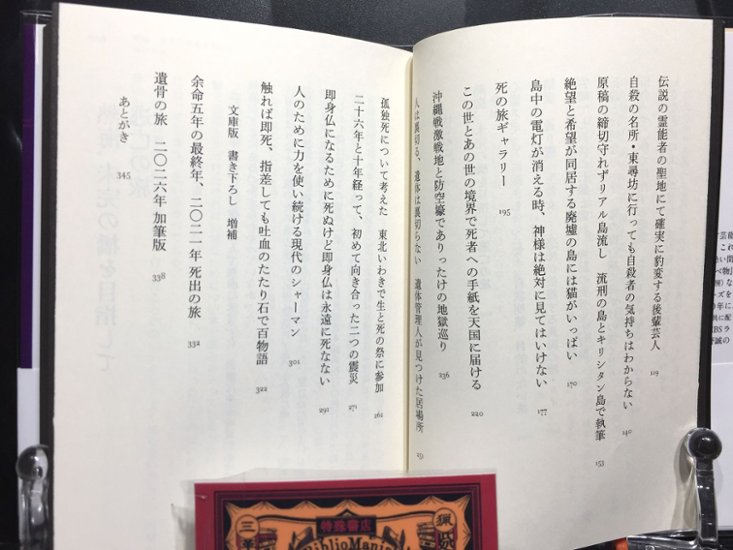 伝説の霊能者の聖地にて確実に豹変する後輩芸人 119
自殺の名所・東尋坊に行っても自殺者の気持ちはわからない 140
原稿の締切守れずリアル島流し 流刑の島とキリシタン島で執筆 153
絶望と希望が同居する廃墟の島には猫がいっぱい 170
島中の電灯が消える時、神様は絶対に見てはいけない 177
死の旅ギャラリー 195
この世とあの世の境界で死者への手紙を天国に届ける 220
沖縄戦激戦地と防空壕でありったけの地獄巡り 236
人は裏切る、遺体は裏切らない 遺体管理人が見つけた居場所 251
孤独死について考えた 東北いわきで生と死の祭に参加 261
二十六年と十年経って、初めて向き合った二つの震災 271
即身仏になるために死ぬけど即身仏は永遠に死なない 291
人のために力を使い続ける現代のシャーマン 301
触れば即死、指差しても吐血のたたり石で百物語 322
文庫版 書き下ろし 増補
余命五年の最終年、二〇二一年死出の旅 332
遺骨の旅 二〇二六年加筆版 338
あとがき 345
特殊書店
BiblioMania